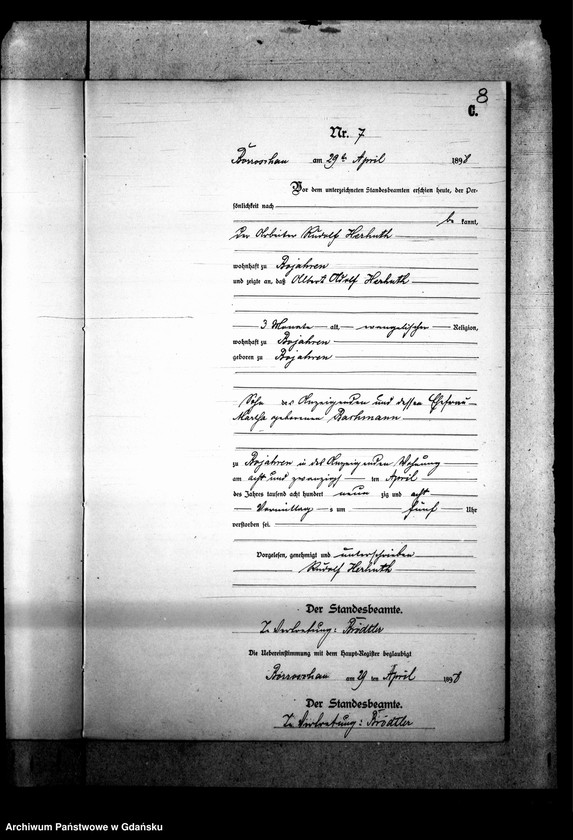 8
C.
Nr. 7
Borroschau am 29ten April 1898
Vor dem unterzeichneten Standesbeamten erschien heute, der Per-
sönlichkeit nach
be kannt,
der Arbeiter Rudolf Herhuth
wohnhaft zu Bojahren
und zeigte an, daß Albert Adolf Herhuth
3 Monate alt, evangelischer Religion,
wohnhaft zu Bojahren
geboren zu Bojahren
Sohn des Anzeigenden und dessen Ehefrau
Martha geborenen
zu Bojahren in des Anzeigenden Wohnung
am acht und zwanzigsten April
des Jahres tausend acht hundert neun zig und acht
Vormittag s um fünf Uhr
verstorben sei.
Vorgelesen, genehmigt und unterschrieben
Rudolf Herhuth
Der Standesbeamte.
In Vertretung: Brödtler
Die Uebereinstimmung mit dem Haupt-Register beglaubigt
Borroschau am 29 ten April 1898
Der Standesbeamte.
In Vertretung: Brödtler
Archiwum Państwowe w Gdańsku